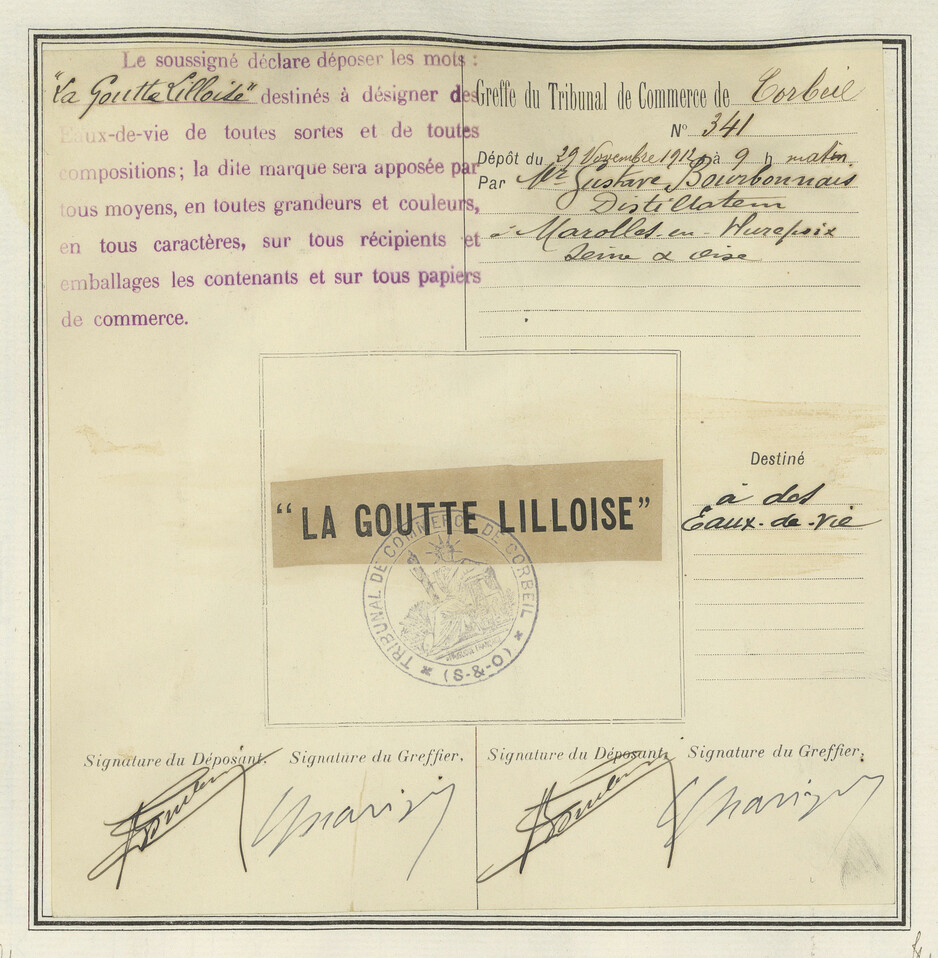 Le soussigné déclare déposer les mots :
"La Goutte Lilloise" destinés à désigner des
Eaux-de-vie de toutes sortes et de toutes
compositions; la dite marque sera apposée par
tous moyens, en toutes grandeurs et couleurs,
en tous caractères, sur tous récipients et
emballages les contenants et sur tous papiers
de commerce.
Greffe du Tribunal de Commerce de Corbeil
N° 341
Dépôt du 29 Novembre 1912 à 9 h matin
Par Mr Gustave Bourbonnais
Distillateur
à Marolles-en-Hurepoix
Seine & Oise
"LA GOUTTE LILLOISE"
TRIBUNAL DE COMMERCE DE CORBEIL
* (S-&-O) *
Destiné
à des
Eaux-de-vie
Signature du Déposant. Signature du Greffier.
Signature du Déposant. Signature du Greffier.